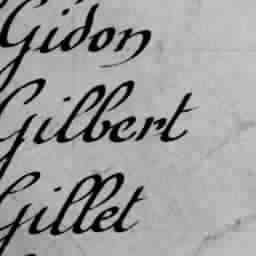 Gidon
Gilbert
Gillet